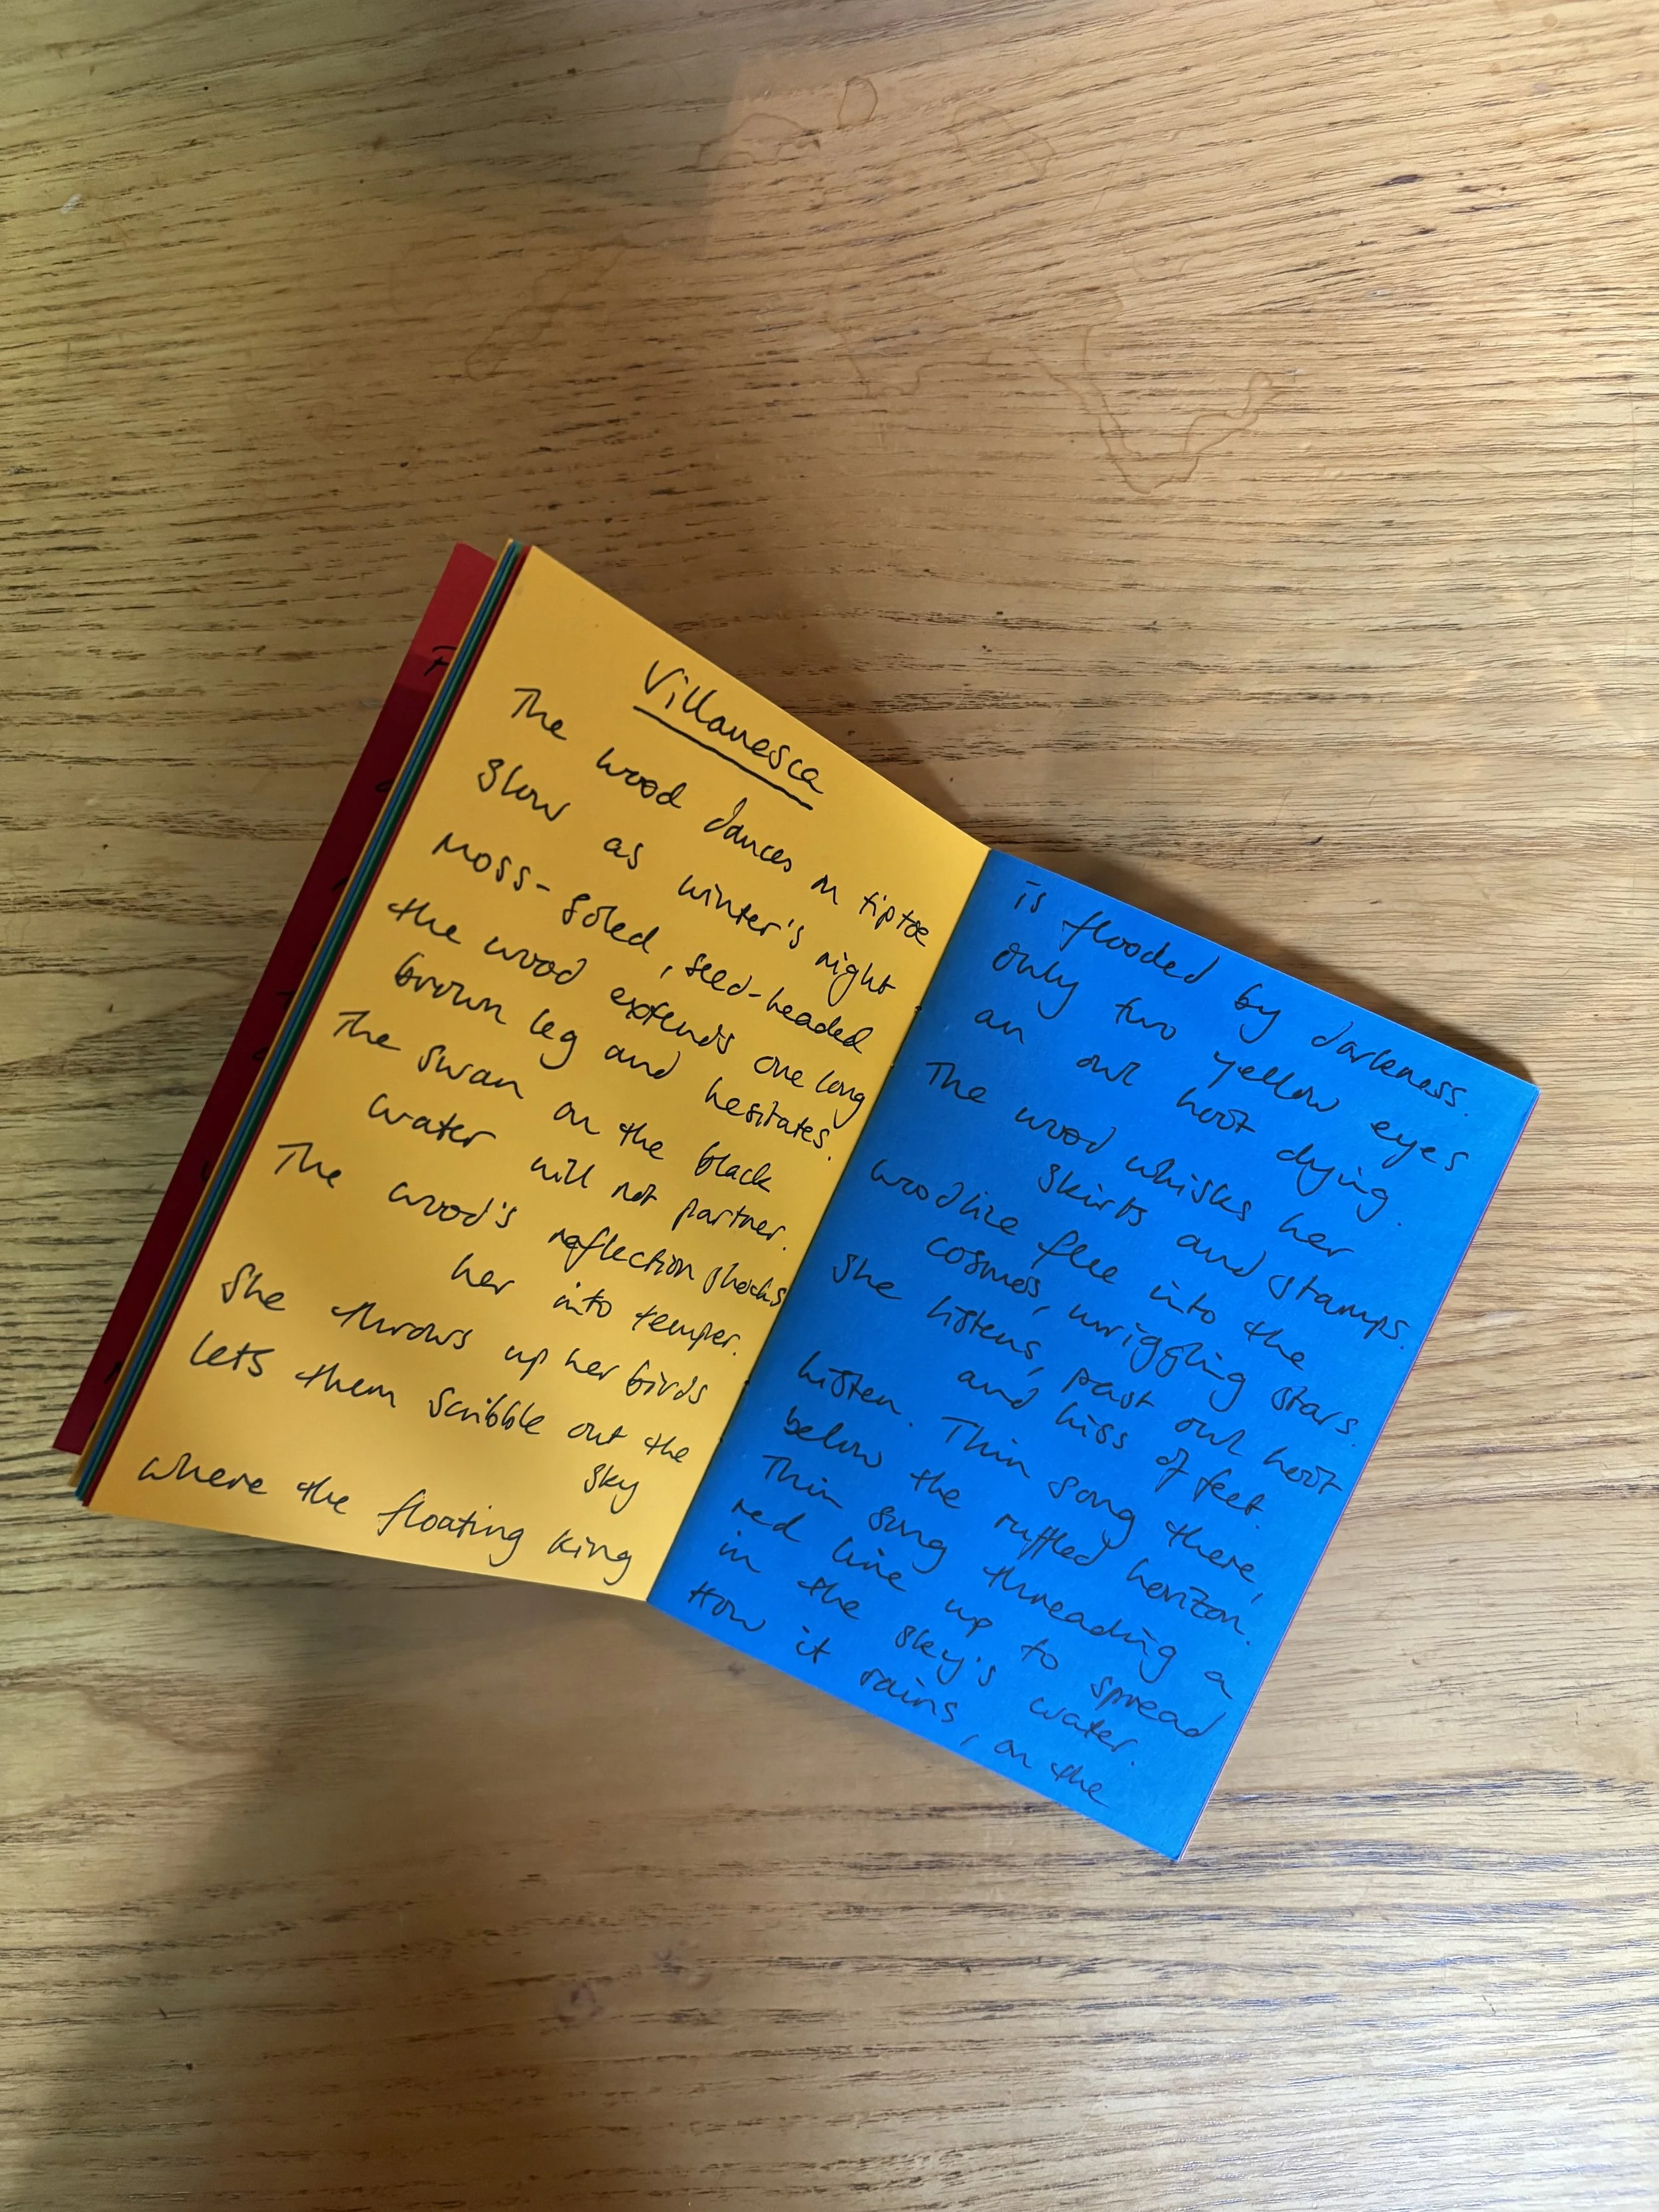 Villanesca
The wood dances on tiptoe
slow as winter's night.
Moss-soled, seed-headed
the wood extends one long
brown leg and hesitates.
The swan on the black
water will not partner.
The wood's reflection shocks
her into temper.
She throws up her birds
lets them scribble out the
sky
where the floating king
is flooded by darkness.
only two yellow eyes
an owl hoot dying.
The wood whisks her
skirts and stamps.
woodlice flee into the
cosmos, wriggling stars.
She listens, past owl hoot
and hiss of feet.
listen. Thin song there,
below the ruffled horizon.
Thin song threading a
red line up to spread
in the sky's water.
How it rains, on the